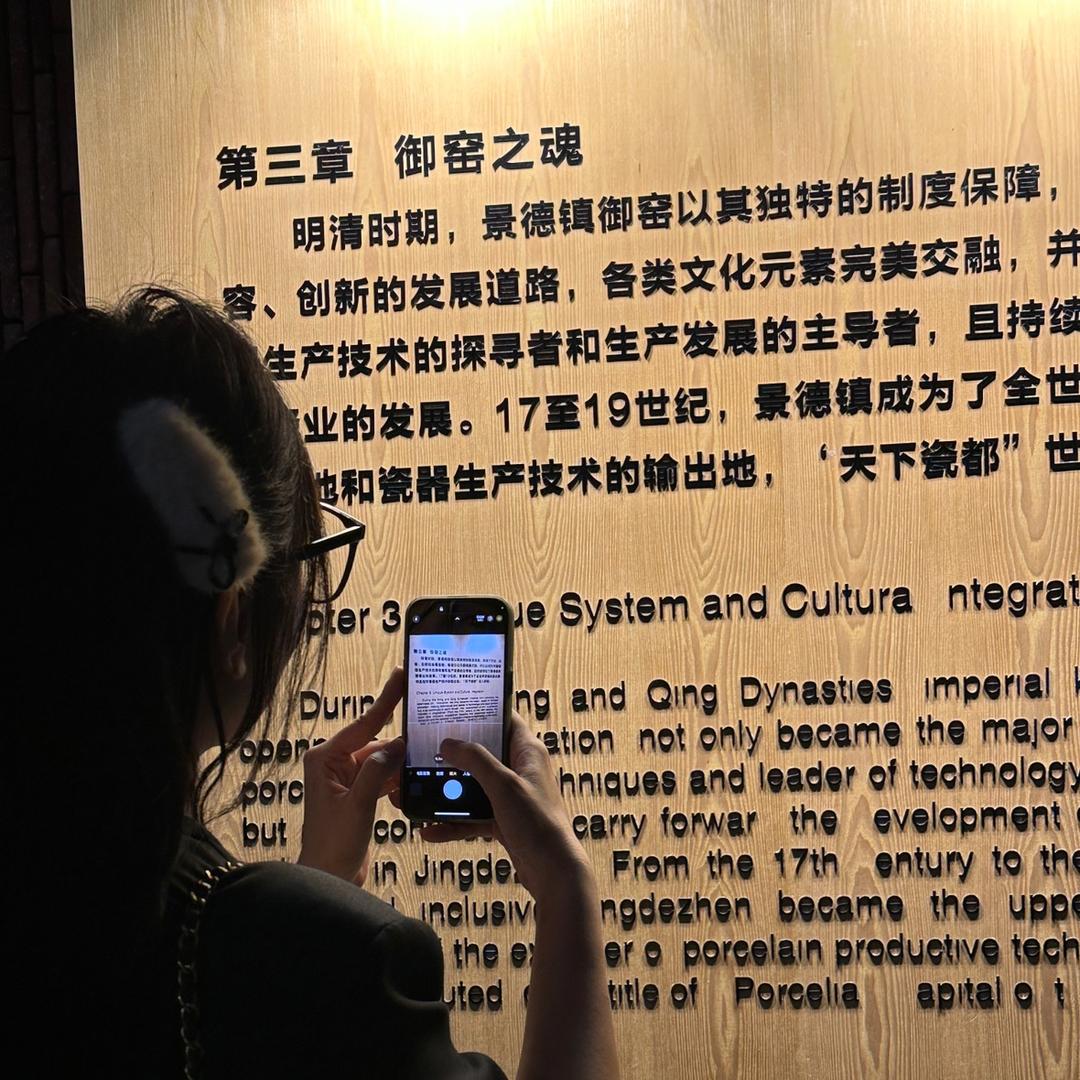 第三章 御窑之魂
明清时期，景德镇御窑以其独特的制度保障，
容、创新的发展道路，各类文化元素完美交融，并
生产技术的探寻者和生产发展的主导者，且持续
业的发展。17至19世纪，景德镇成为了全世
地和瓷器生产技术的输出地，‘天下瓷都”世
pter 3 ue System and Cultura ntegrat
Durin ng and Qing Dynasties imperial
openn vation not only became the major
porc hniques and leader of technology
but con carry forwar the evelopment
in Jingde From the 17th entury to the
inclusiv ngdezhen became the uppe
the ex er o porcelain productive tech
uted title of Porcelia apital o t